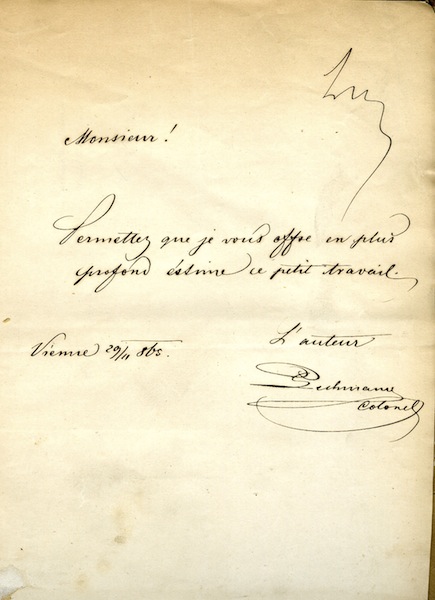 Monsieur!
Permettez que je vous offre en plus
profond éstime ce petit travail.
L'auteur
Vienne 29/11 865.
Colonel